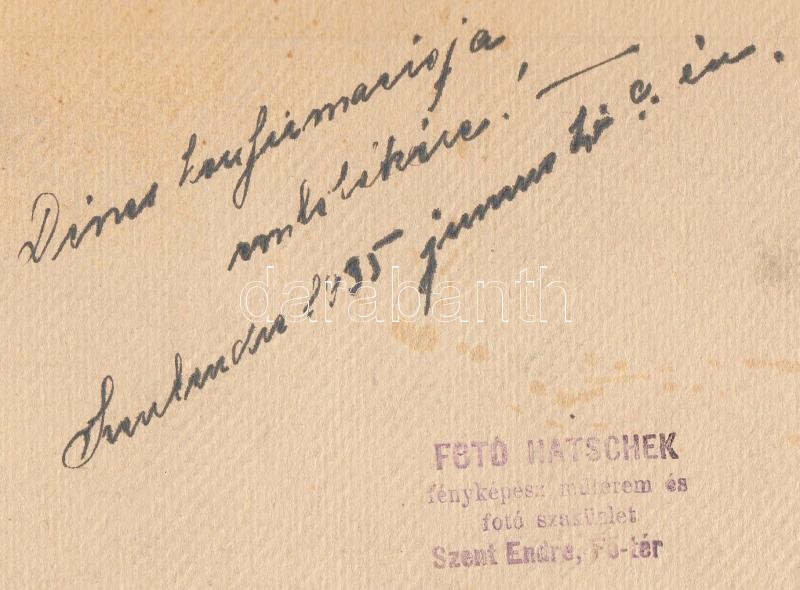 Dines konfirmaciója
emlékére! —
Szentendre 1935 junius én.
darabanth
FOTÓ HATSCHEK
fényképész műterem és
fotó szaküzlet
Szent Endre, Fő-tér